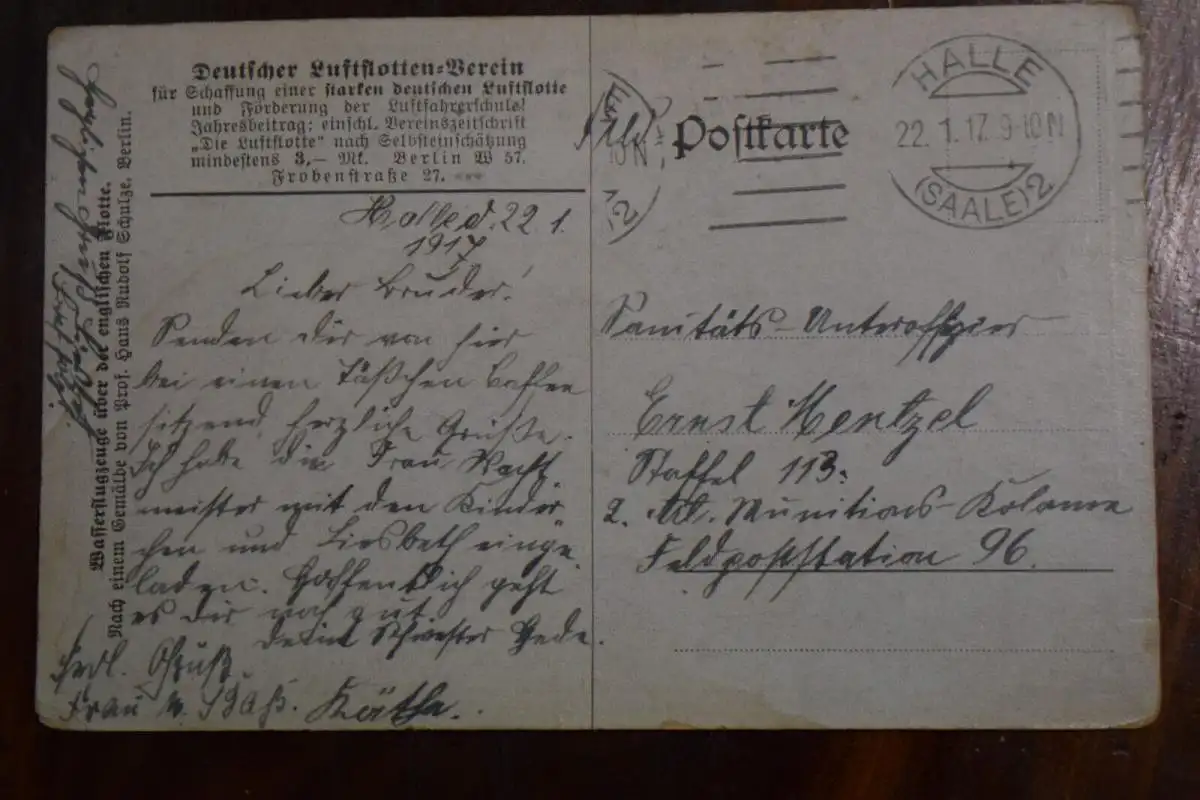 Deutscher Luftflotten-Verein
für Schaffung einer starken deutschen Luftflotte
und Förderung der Luftfahrerschule!
Jahresbeitrag: einschl. Vereinszeitschrift
„Die Luftflotte" nach Selbsteinschätzung
mindestens 3,— Mk. Berlin W 57.
Frobenstraße 27.
Halle d. 22 1.
1917
Lieber Bruder!
Senden dir von hier
bei einen Täßchen Kaffee
sitzend herzliche Grüße.
Ich habe die Frau Wacht
meister mit den Kinder
chen und Liesbeth einge
laden. Hoffentlich geht
es dir noch gut
Deine Schwester
Herzl. Gruß
Frau
Käthe.
Wasserflugzeuge über der englischen Flotte.
Nach einem Gemälde von Prof. Hans Rudolf Schulze, Berlin.
Postkarte
HALLE
22. 1. 17. 9-10 N
(SAALE) 2
Sanitäts-Unteroffizier
Ernst Hentzel
Staffel 113.
2. Munitions-Kolonne
Feldpoststation 96.